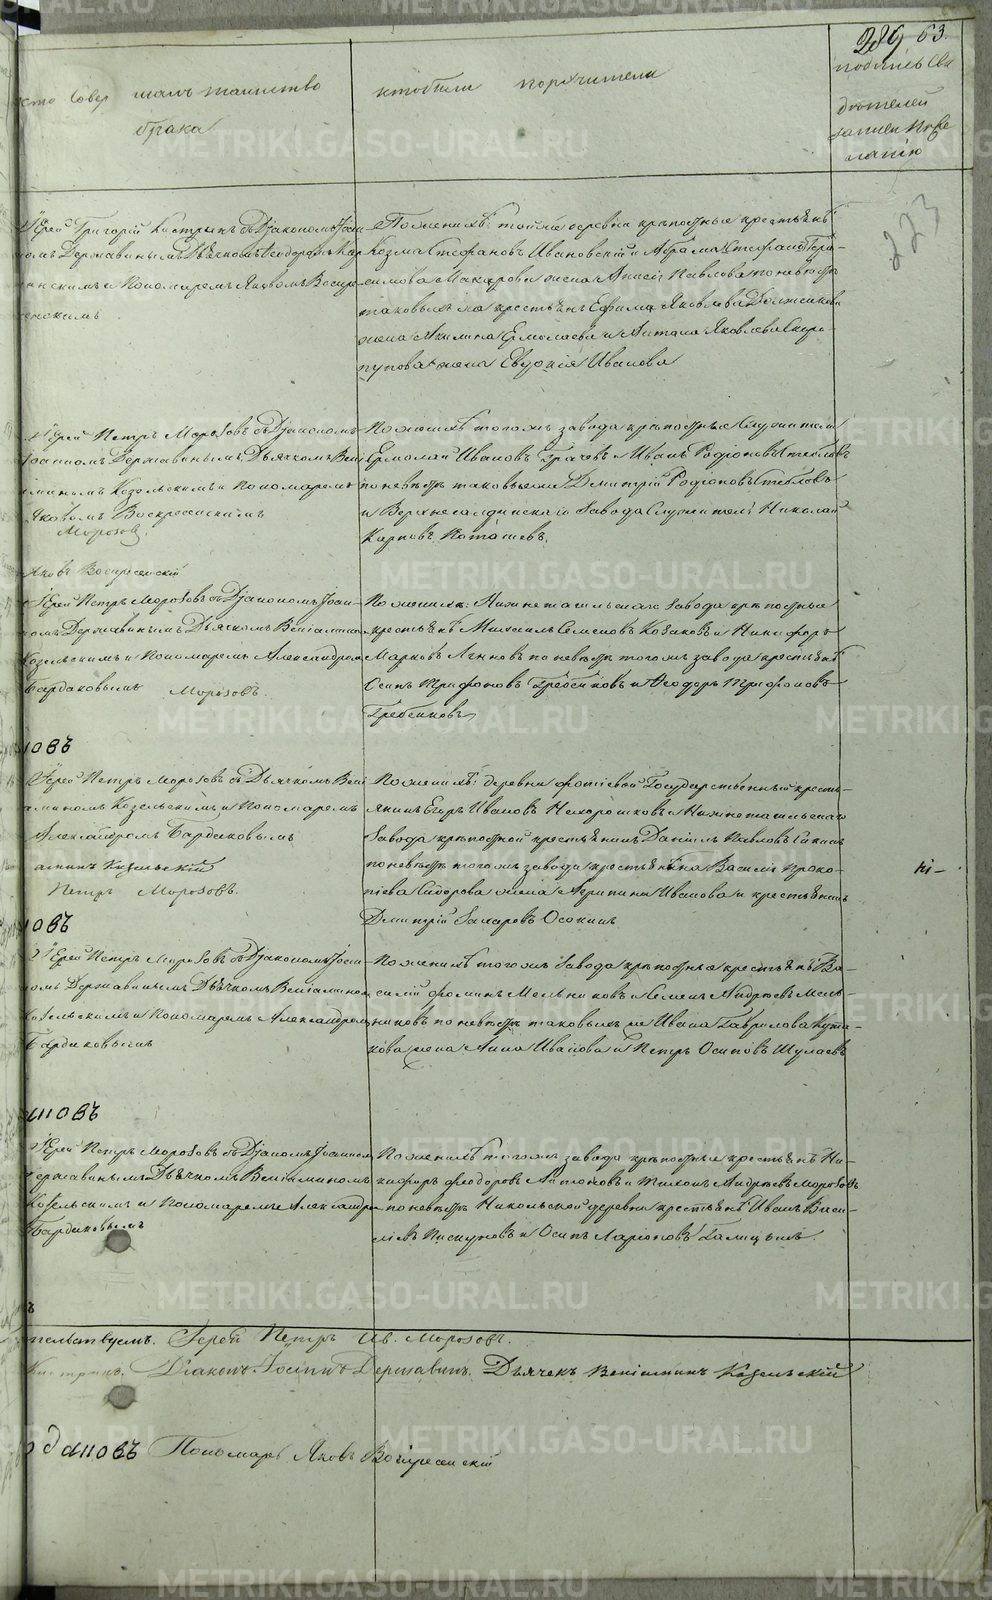 289 63.
кто Совер шалъ таинство
брака
кто были поручители
подпись Сви
дѣтелей
записи по же
ланію
223
Іерей Григорій Кастринъ съ Діакономъ Іоси
номъ Державинымъ Дьячкомъ Ѳеодоромъ
и Пономаремъ Яковомъ Воскре
сенскимъ
По женихѣ: той же деревни крѣпостные крестьянѣ
Козма Стефановъ Ивановскій и Абрама Стефанова Гера
симова Макарова жена Павлова по невѣстѣ
таковыхъ же крестьянъ Ефима Яковлева Должикова
жена Акилина Ермолаева и Антона Яковлева Скоро
пупова жена Евдокія Иванова
Іерей Петръ Морозовъ съ Діакономъ
Іосифомъ Державинымъ, Дьячкомъ Вені
аминомъ Козельскимъ и Пономаремъ
Яковомъ Воскресенскимъ
Морозов.
По женихѣ того жъ завода крѣпостные Служители
Ермолай Ивановъ Грачевъ и Иванъ Родіоновъ Стебловъ
по невѣстѣ таковые же Димитрій Родіоновъ Стебловъ
и Верхнесалдинскаго завода Служитель Николай
Карповъ Поташевъ.
Яковъ Воскресенскій
Іерей Петръ Морозовъ съ Діакономъ Іоси
номъ Державинымъ Дьячкомъ Веніамин
Козельскимъ и Пономаремъ Александром
Бардаковымъ Морозовъ.
По женихѣ: Нижнетагильскаго завода крѣпостные
крестьянѣ Михаилъ Семеновъ Козаковъ и Никифоръ
Марковъ по невѣстѣ того жъ завода крестьянѣ
Осипъ Трифоновъ Гребенковъ и Ѳеодоръ Трифоновъ
Гребенковъ
новъ
Іерей Петръ Морозовъ съ Дьячкомъ Вені
аминомъ Козельскимъ и Пономаремъ
Александромъ Бардаковымъ
аминъ Козельскій
Петръ Морозовъ.
По женихѣ: деревни Фотѣевой Государственный кресть
янинъ Егоръ Ивановъ Нехорошковъ и Нижнетагильскаго
завода крѣпостной крестьянинъ Даніилъ Павловъ
по невѣстѣ того жъ завода крестьянина Василія Проко
піева Сидорова жена Агрипина Иванова и крестьянинъ
Дмитрій Захаровъ Осокинъ
новъ
Іерей Петръ Морозовъ съ Діакономъ Іоси
номъ Державинымъ Дьячкомъ Веніамином
Козельскимъ и Пономаремъ Александром
Бардаковымъ
По женихѣ того жъ завода крѣпостные крестьянѣ Ва
силій Фоминъ Мельниковъ и Семенъ Андреевъ Мель
никовъ по невѣстѣ таковыхъ же Ивана Гаврилова Кута
кова жена Анна Иванова и Петръ Осиповъ Шулаевъ
новъ
Іерей Петръ Морозовъ съ Діакономъ Іосином
Державинымъ Дьячкомъ Веніаминомъ
Козельскимъ и Пономаремъ Александро
Бардаковымъ
По женихѣ того жъ завода крѣпостные крестьянѣ Ни
кифоръ Ѳеодоровъ Антоновъ и Тихонъ Андреевъ Морозовъ
по невѣстѣ Никольской деревни крестьянѣ Иванъ Васи
ліевъ Пискуновъ и Осипъ Ларіоновъ Галицынъ.
тельствуемъ. Іерей Петръ Ив. Морозовъ.
Кастринъ. Діаконъ Іосіпъ Державинъ. Дьячекъ Веніаминъ Козельскій
дановъ Пономарь Яковъ Воскресенскій
METRIKI.GASO-URAL.RU